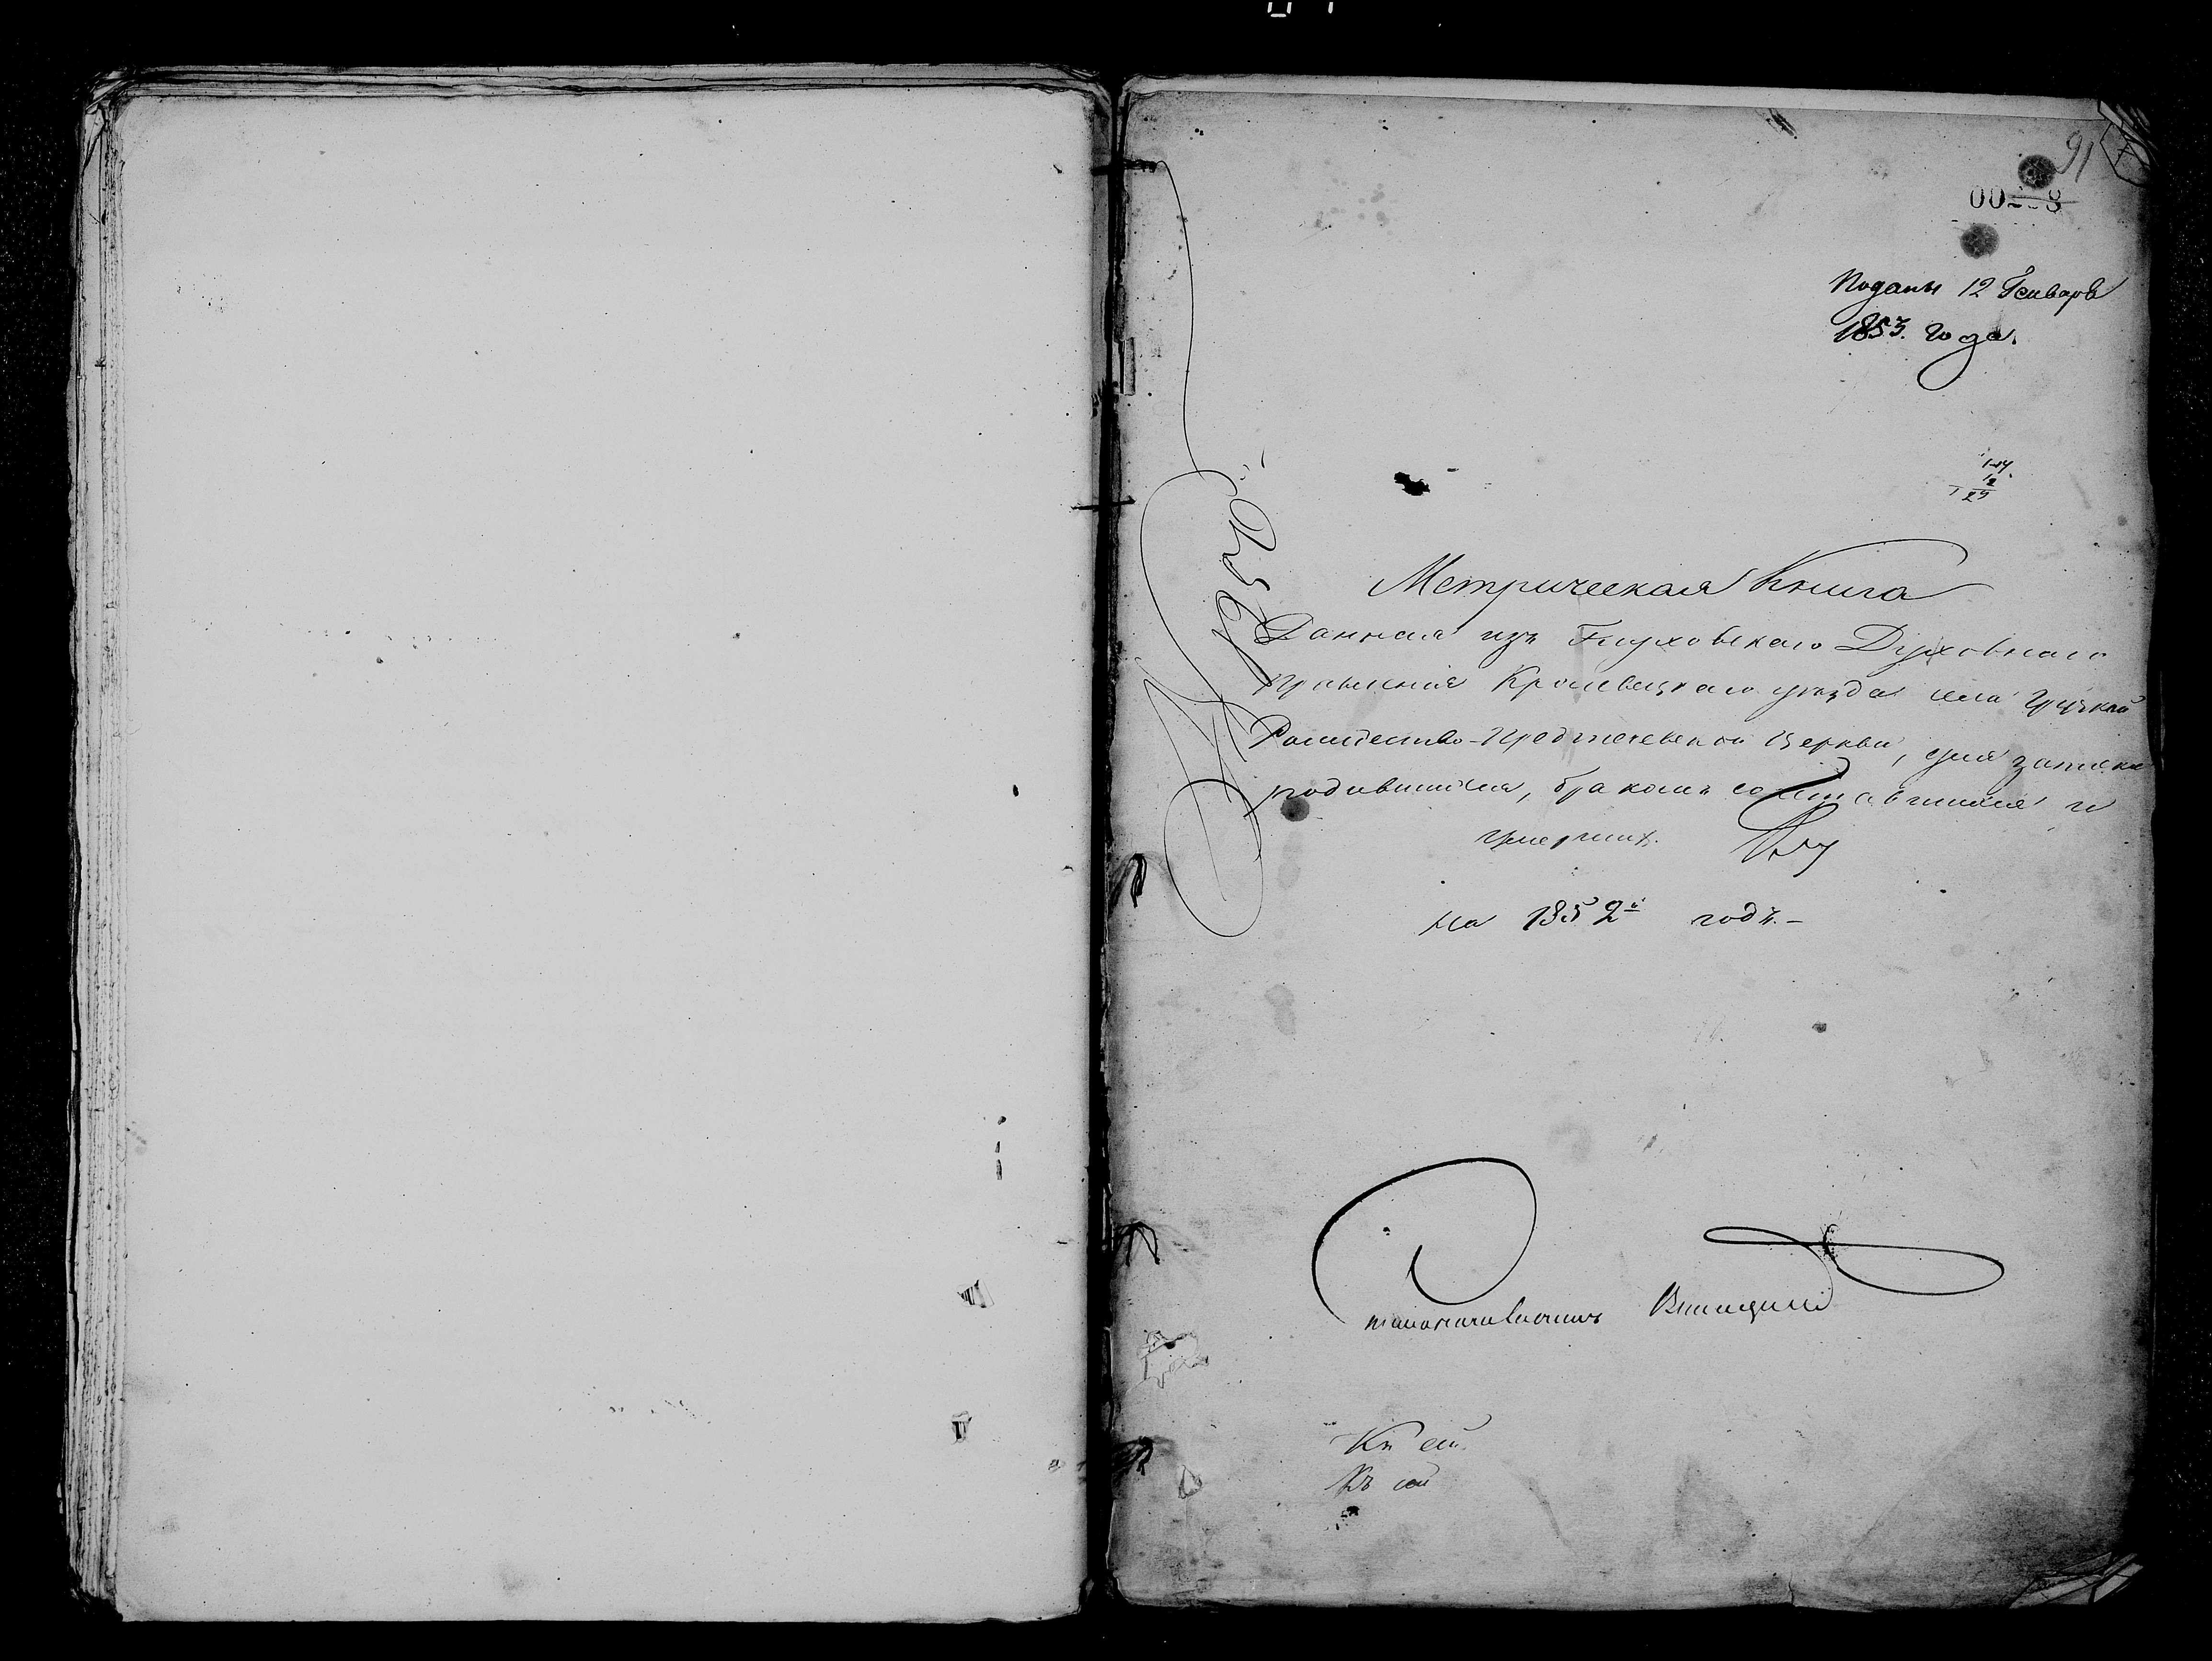 91
Поданы 12 Генваря
1853. года.
Метрическая Книга
Данная изъ Глуховскаго Духовнаго
Правленія Кролевецкаго уѣзда села Грузкой
Рождество-Предтечевской Церкви, для записки
родившихся, бракомъ сочетавшихся и
умершихъ.
на 1852й годъ.-
Къ сей
Къ сей